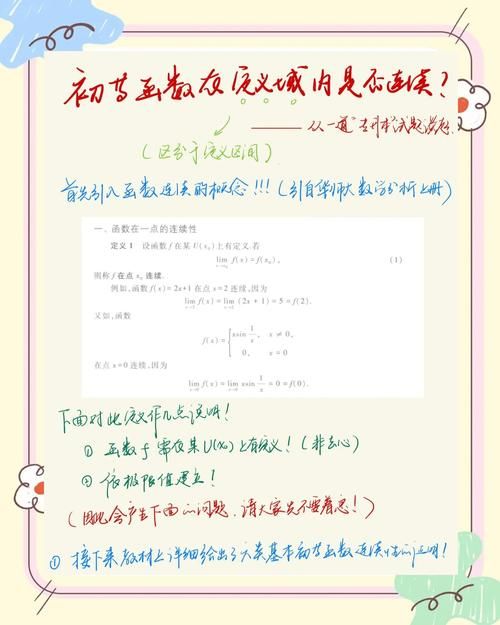 初等函数在定义域内是否连续?
——从一道"专升本"试题说起.
(区分于定义区间)
首先引入函数连续的概念!!!(引自华师大数学分析上册)
一、函数在一点的连续性
定义 1 设函数 f 在某 U(x₀)上有定义.若
lim f(x) = f(x₀), (1)
则称 f 在点 x₀ 连续.
例如,函数 f(x) = 2x+1 在点 x=2 连续,因为
lim f(x) = lim (2x + 1) = 5 = f(2).
x→2 x→2
又如,函数
f(x) = { x sin 1/x, x ≠ 0,
0, x = 0
在点 x=0 连续,因为
lim f(x) = lim x sin 1/x = 0 = f(0).
x→0 x→0
下面对此定义作几点说明!
① 函数 f 需在某 U(x₀) 上有定义!(非去心)
② 依极限值建立!
(因此会产生下面的问题,请大家先不要着急!)
① 接下来教材上详细给出了六类基本初等函数连续性的证明!